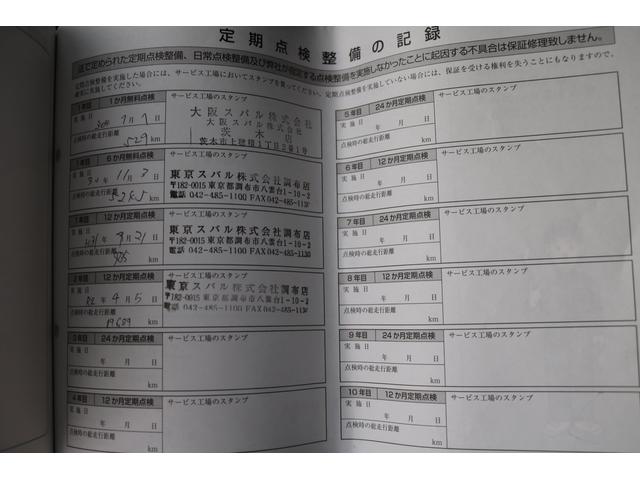 定期点検整備の記録
法で定められた定期点検整備、日常点検整備及び弊社が指定する点検整備を実施しなかったことに起因する不具合は保証修理致しません。
定期点検整備を実施した場合には、サービス工場においてスタンプを貰ってください。定期点検整備を実施していない場合には、保証を受ける権利を失うことにもなりますので、
確実に実施してください。
1年目 1か月無料点検 サービス工場のスタンプ
実施日
7月7日
点検時の総走行距離
529 km
大阪スバル株式会社
大阪スバル株式会社
茨木店
1年目 6か月無料点検 サービス工場のスタンプ
実施日
11月3日
点検時の総走行距離
km
東京スバル株式会社調布店
〒182-0015 東京都調布市八雲台1-10-2
電話 042-485-1100 FAX 042-485-113
1年目 12か月定期点検 サービス工場のスタンプ
実施日
年9月21日
点検時の総走行距離
km
東京スバル株式会社調布店
〒182-0015 東京都調布市八雲台1-10-2
電話 042-485-1100 FAX 042-485-1130
2年目 12か月定期点検 サービス工場のスタンプ
実施日
年4月5日
点検時の総走行距離
19689 km
東京スバル株式会社調布店
〒182-0015 東京都調布市八雲台1-10-2
電話 042-485-1100 FAX 042-485-113
3年目 24か月定期点検 サービス工場のスタンプ
実施日
年 月 日
点検時の総走行距離
km
4年目 12か月定期点検 サービス工場のスタンプ
実施日
年 月 日
点検時の総走行距離
km
5年目 24か月定期点検 サービス工場のスタンプ
実施日
年 月 日
点検時の総走行距離
km
6年目 12か月定期点検 サービス工場のスタンプ
実施日
年 月 日
点検時の総走行距離
km
7年目 24か月定期点検 サービス工場のスタンプ
実施日
年 月 日
点検時の総走行距離
km
8年目 12か月定期点検 サービス工場のスタンプ
実施日
年 月 日
点検時の総走行距離
km
9年目 24か月定期点検 サービス工場のスタンプ
実施日
年 月 日
点検時の総走行距離
km
10年目 12か月定期点検 サービス工場のスタンプ
実施日
年 月 日
点検時の総走行距離
km